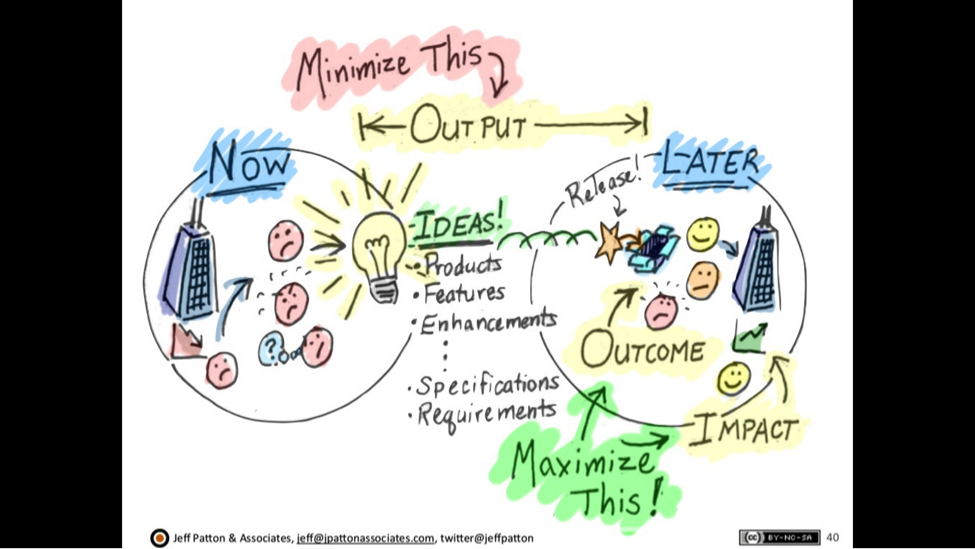 Minimize This
OUTPUT
NOW
LATER
Release!
IDEAS!
• Products
• Features
• Enhancements
• Specifications
• Requirements
?
OUTCOME
IMPACT
Maximize
This!
Jeff Patton & Associates, jeff@jpattonassociates.com, twitter@jeffpatton
(cc) BY-NC-SA
40